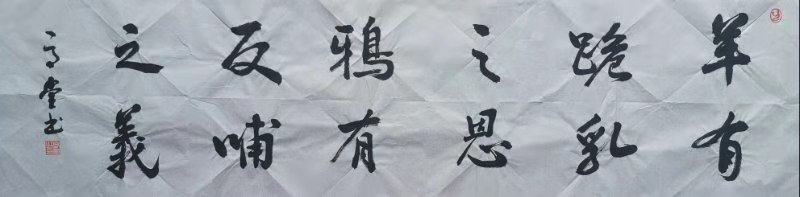 羊有
跪乳
之恩
鴉有
反哺
之義
高堂书